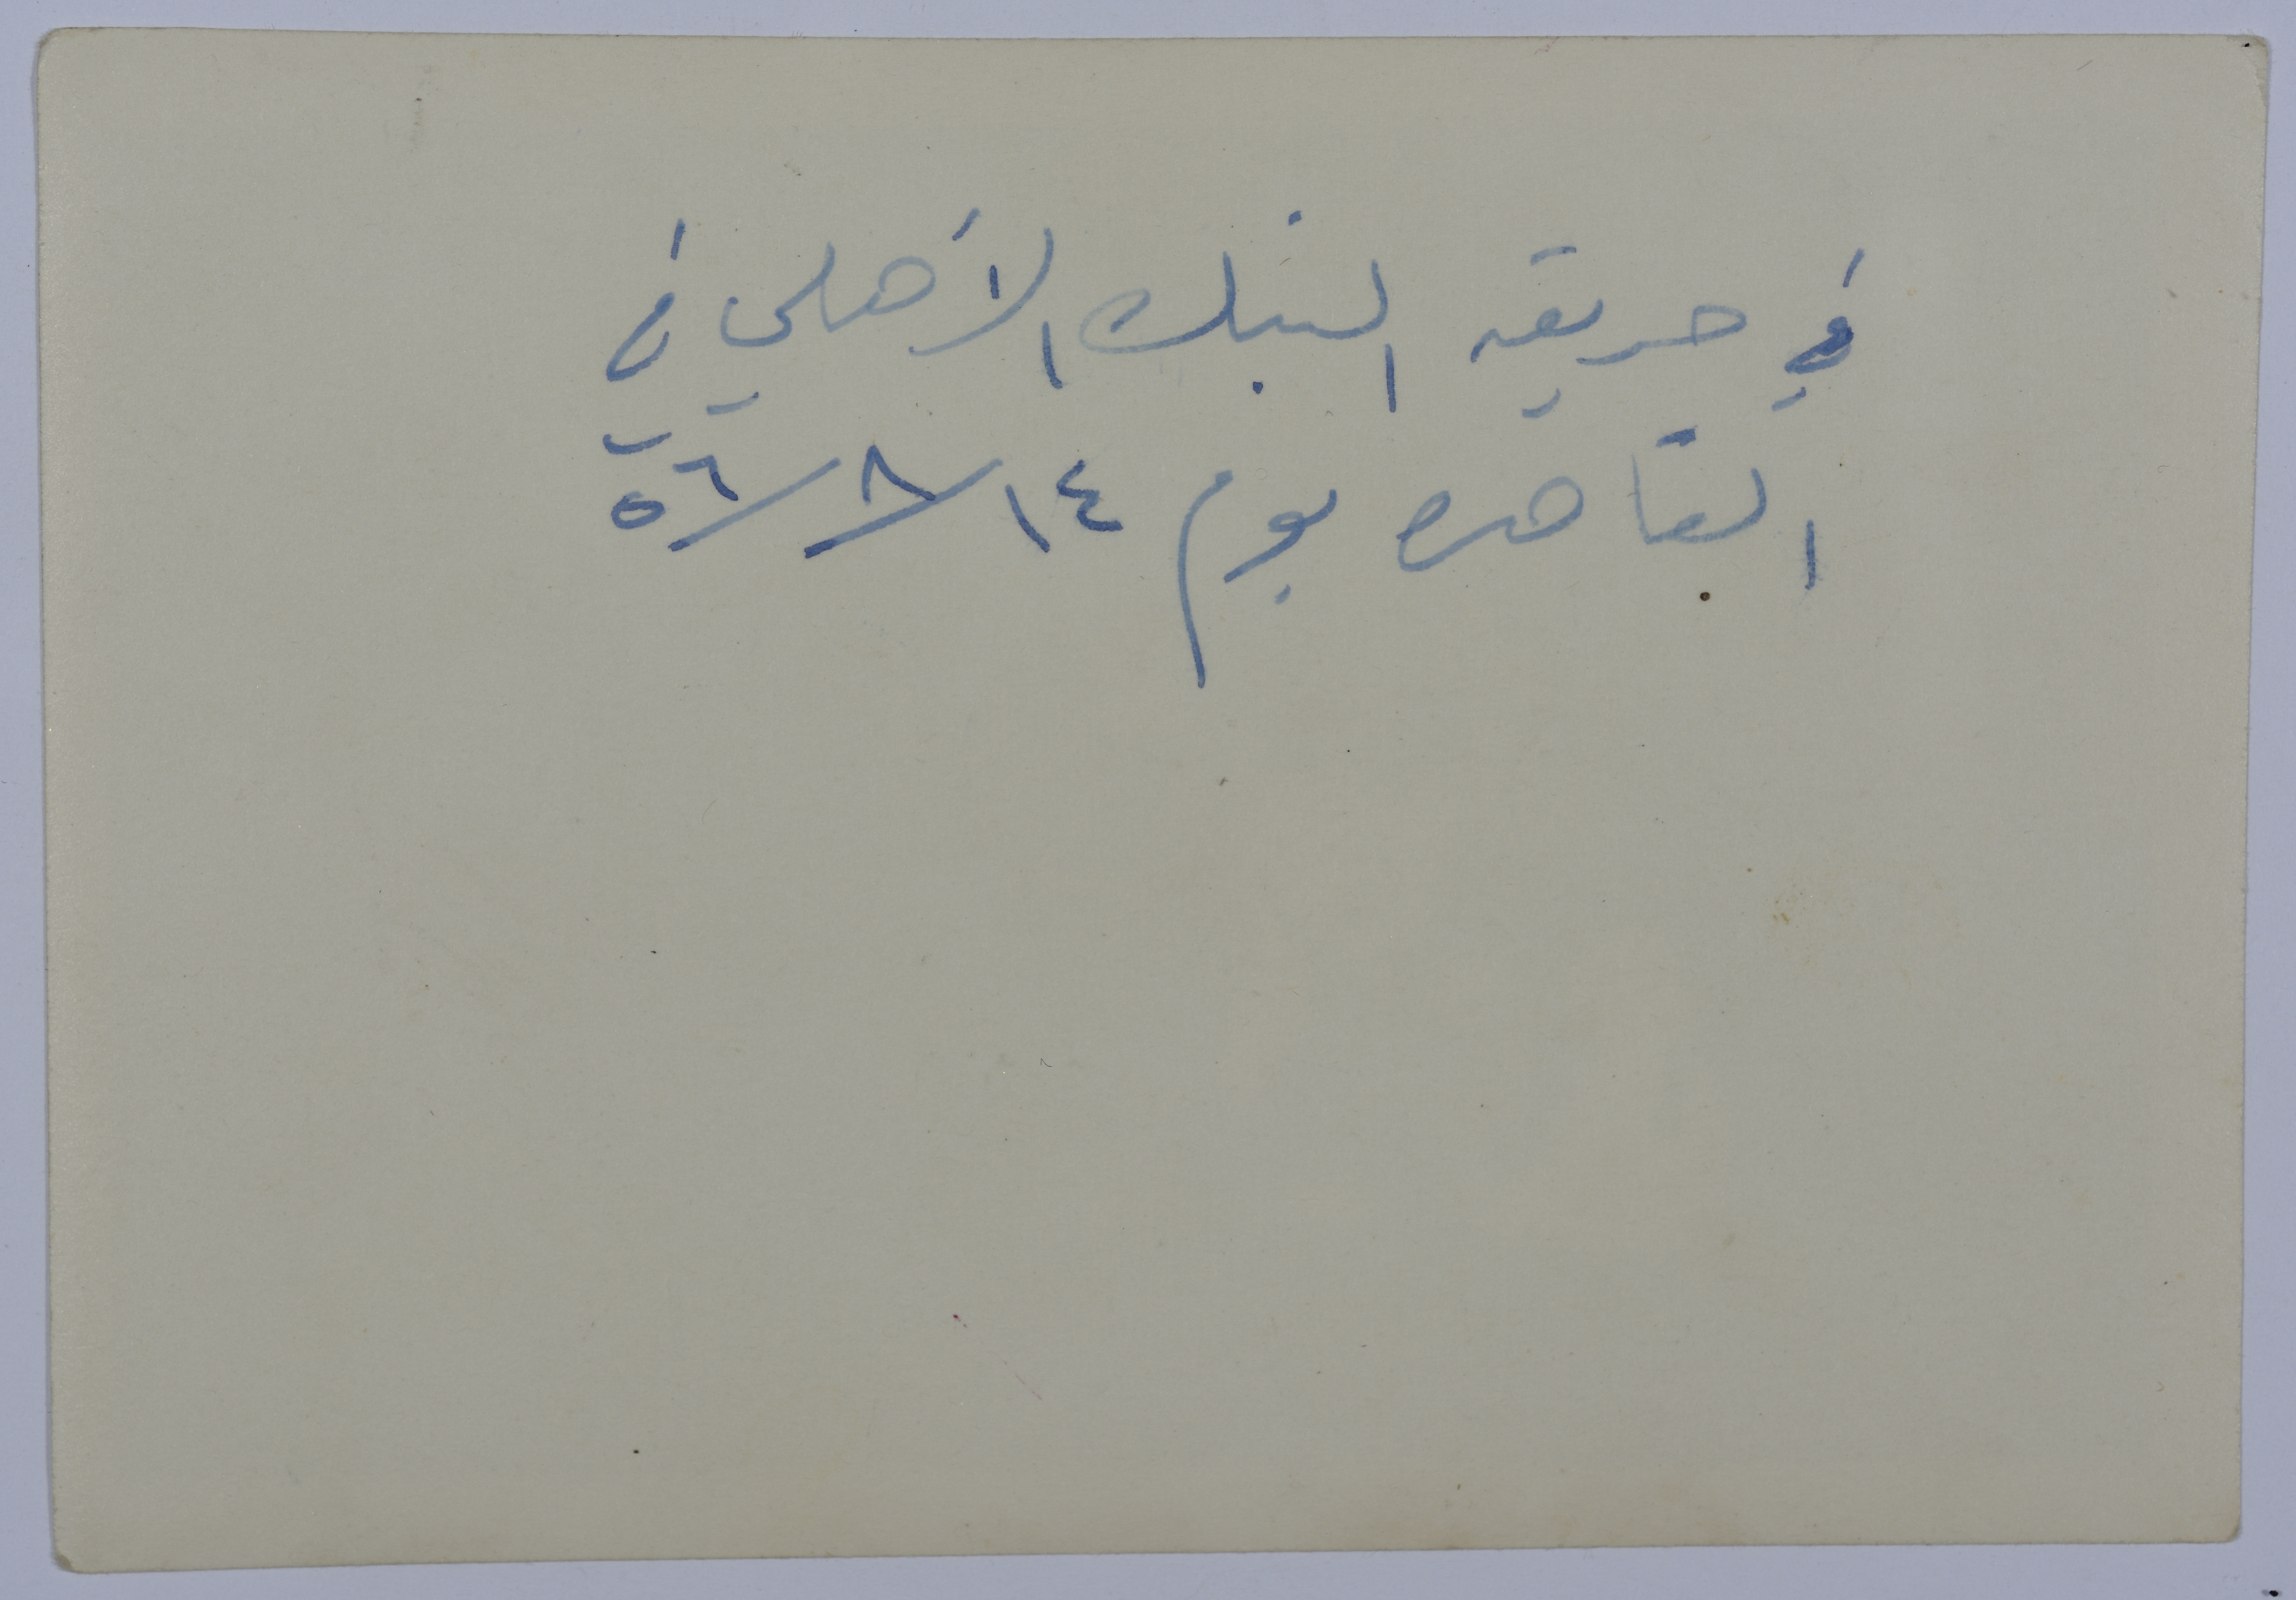 في حديقه البنك الأهلي في
القاهره يوم ١٤/٨/٥٦